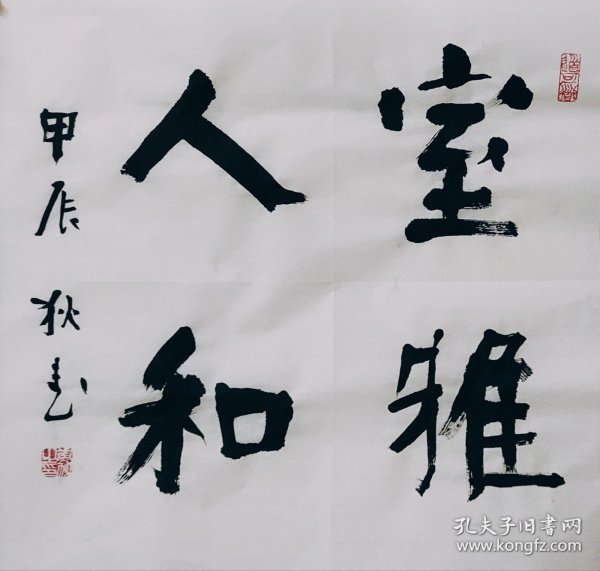 室雅
人和
甲辰
狄
孔夫子旧书网
www.kongfz.com